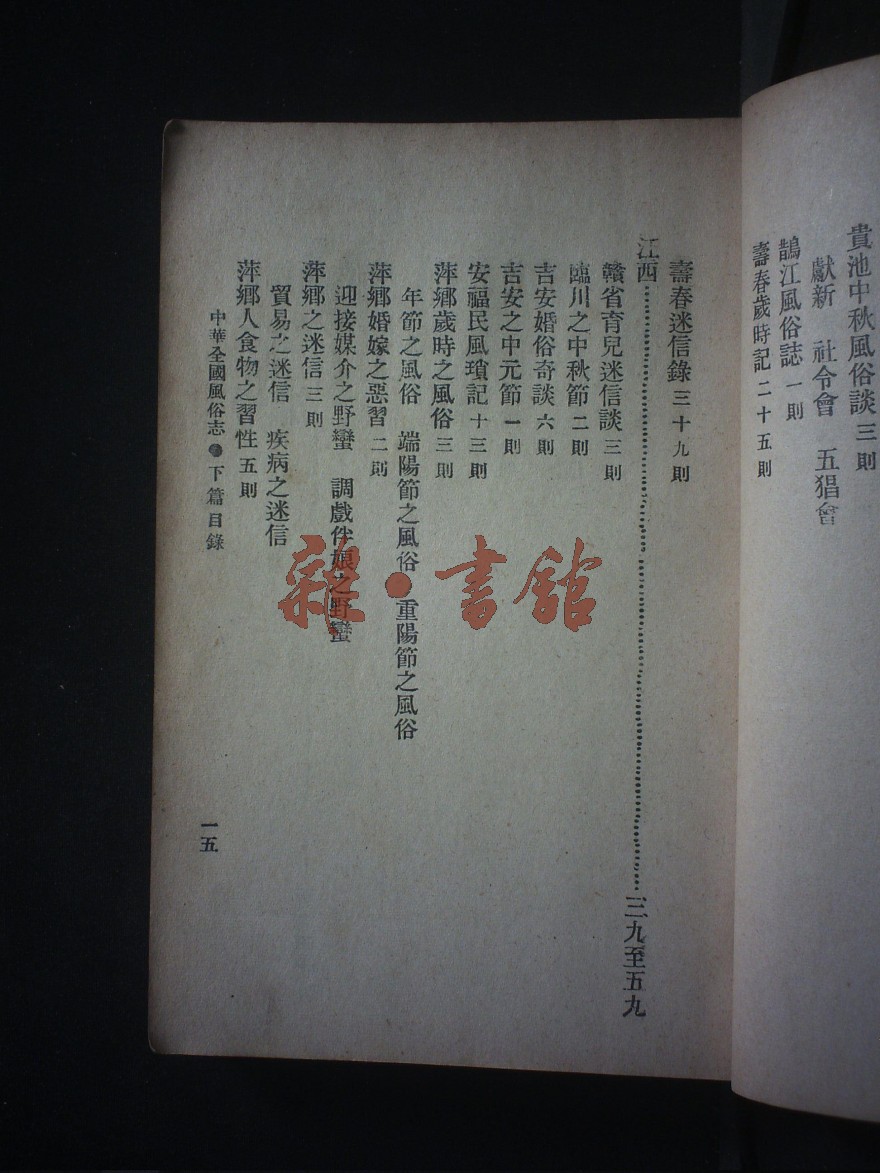 貴池中秋風俗談 三則
獻新 社令會 五猖會
鵲江風俗誌 一則
壽春歲時記 二十五則
壽春迷信錄 三十九則
江西……………………三九至五九
贛省育兒迷信談 三則
臨川之中秋節 二則
吉安婚俗奇談 六則
吉安之中元節 一則
安福民風瑣記 十三則
萍鄉歲時之風俗 三則
年節之風俗 端陽節之風俗 重陽節之風俗
萍鄉婚嫁之惡習 二則
迎接媒介之野蠻 調戲伴娘之野蠻
萍鄉之迷信 三則
貿易之迷信 疾病之迷信
萍鄉人食物之習性 五則
中華全國風俗志●下篇目錄
一五
雜·書館